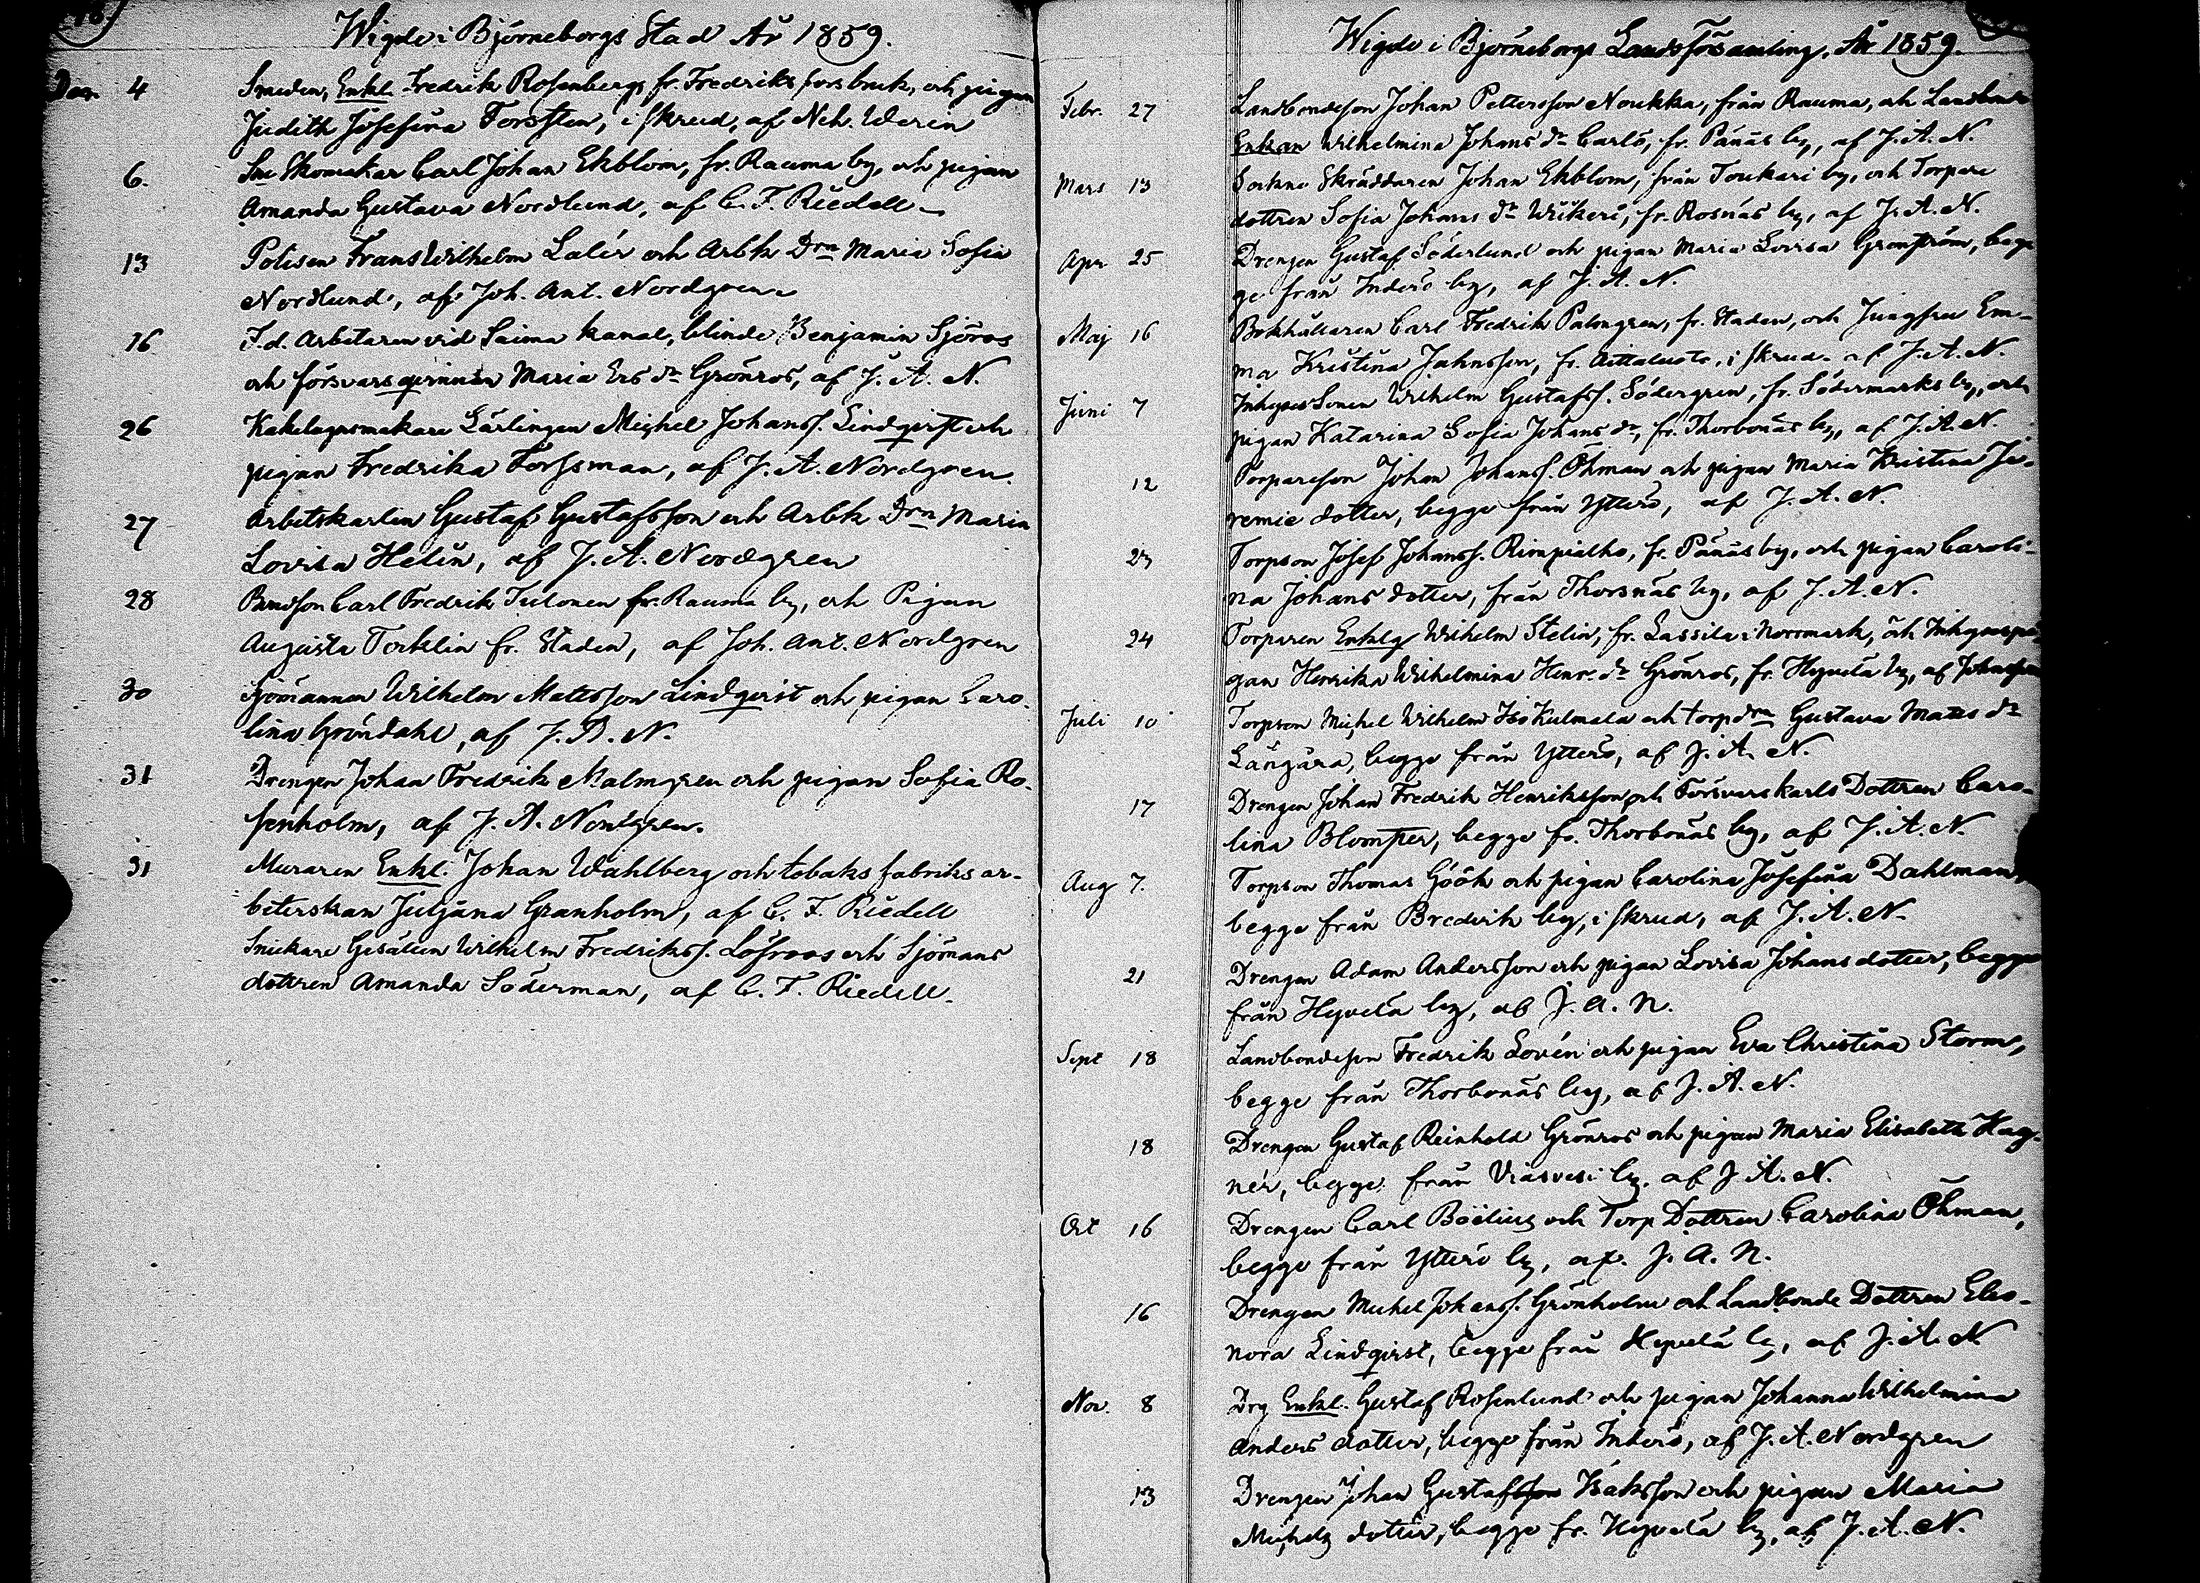 Wigde i Björneborgs Stad År 1859.
Dec. 4 Smeden, Enkl. Fredrik Rosenberg, fr. Fredriksfors bruk, och pigan
Judith Josefina Forsten, i skrud, af Neh. Werin
6. Skomakar Carl Johan Ekblom, fr. Rauma by, och pigan
Amanda Gustava Nordlund, af C. F. Riedell
13 Polisen Frans Wilhelm Lalér och Arbk Drn Maria Sofia
Nordlund, af Joh. Ant. Nordgren
16 F.d. Arbetaren vid Saima kanal, blinde Benjamin Sjöros
och försvarsqvinnan Maria Ers dr Grönros, af J. A. N.
26 Kakelugnsmakare Lärlingen Michel Johanss. Lindqvist och
pigan Fredrika Forssman, af J. A. Nordgren.
27 Arbetskarlen Gustaf Gustafsson och Arbk Drn Maria
Lovisa Helin, af J. A. Nordgren
28 Bondson Carl Fredrik Tulonen fr. Rauma by, och Pigan
Augusta Torklin fr. Staden, af Joh. Ant. Nordgren
30 Sjömannen Wilhelm Mattsson Lindqvist och pigan Caro-
lina Gröndahl, af J. A. N.
31 Drengen Johan Fredrik Malmgren och pigan Sofia Ro-
senholm, af J. A. Nordgren.
31 Muraren Enkl. Johan Wahlberg och tobaksfabriks ar-
beterskan Juljana Granholm, af C. F. Riedell
Snickare Gesällen Wilhelm Fredrikss. Löfroos och Sjömans
dottren Amanda Söderman, af C. F. Riedell.
Wigde i Björneborgs Landsförsamling, År 1859.
Febr. 27 Landbondeson Johan Pettersson Noukka, från Rauma, och
Enkan Wilhelmina Johans dr Carlö, fr. Pånäs by, af J. A. N.
Mars 13 Sockne Skräddaren Johan Ekblom, från Toukari by, och Torpare
dottren Sofia Johans dr Wikeri, fr. Rosnäs by, af J. A. N.
Apr 25 Drengen Gustaf Söderlund och pigan Maria Lovisa Gronström, beg-
ge från Inderö by, af J. A. N.
Maj 16 Bokhållaren Carl Fredrik Palmgren, fr. Staden, och Jungfru Em-
ma Kristina Jahnsson, fr. Aittaluoto, i skrud. af J. A. N.
Juni 7 Inhyses Sonen Wilhelm Gustafss. Södergren, fr. Södermarks by, och
pigan Katarina Sofia Johans dr, fr. Thorbonäs by, af J. A. N.
12 Torpareson Johan Johanss. Öhman och pigan Maria Kristina Je-
remie dotter, begge från Ytterö, af J. A. N.
23 Torpson Josef Johanss. Rimpialho, fr. Pånäs by, och pigan Caroli-
na Johans dotter, från Thorsnäs by, af J. A. N.
24 Torparen Enklg Wilhelm Stelin, fr. Lassila i Norrmark, och Inhysespi-
gan Henrika Wilhelmina Henr. dr Grönros, fr. Hyvelä by, af
Juli 10 Torpson Michel Wilhelm Iso Kulmala och torpdrn Gustava Matts dr
Långåra, begge från Ytterö, af J. A. N.
17 Drengen Johan Fredrik Henriksson och Försvarskarls Dottren Caro-
lina Blomster, begge fr. Thorbonäs by, af J. A. N.
Aug 7. Torpson Thomas Göök och pigan Carolina Josefina Dahlman,
begge från Bredvik by, i skrud, af J. A. N.
21 Drengen Adam Andersson och pigan Lovisa Johans dotter, begge
från Hyvelä by, af J. A. N.
Sept 18 Landbondeson Fredrik Lovén och pigan Eva Christina Storm,
begge från Thorbonäs by, af J. A. N.
18 Drengen Gustaf Reinhold Grönros och pigan Maria Elisabeth Hag-
nér, begge från Viasvesi by. af J. A. N.
Oct 16 Drengen Carl Böelius och Torp Dottren Carolina Öhman,
begge från Ytterö by, af. J. A. N.
16 Drengen Mickel Johanss. Grönholm och Landbonde Dottren Eleo-
nora Lindqvist, begge från Hyvelä by, af J. A. N
Nov. 8 Drg Enkl. Gustaf Rosenlund och pigan Johanna Wilhelmina
Anders dotter, begge från Inderö, af J. A. Nordgren
13 Drengen Johan Gustafsson Isaksson och pigan Maria
Michels dotter, begge fr. Hyvelä by, af J. A. N.